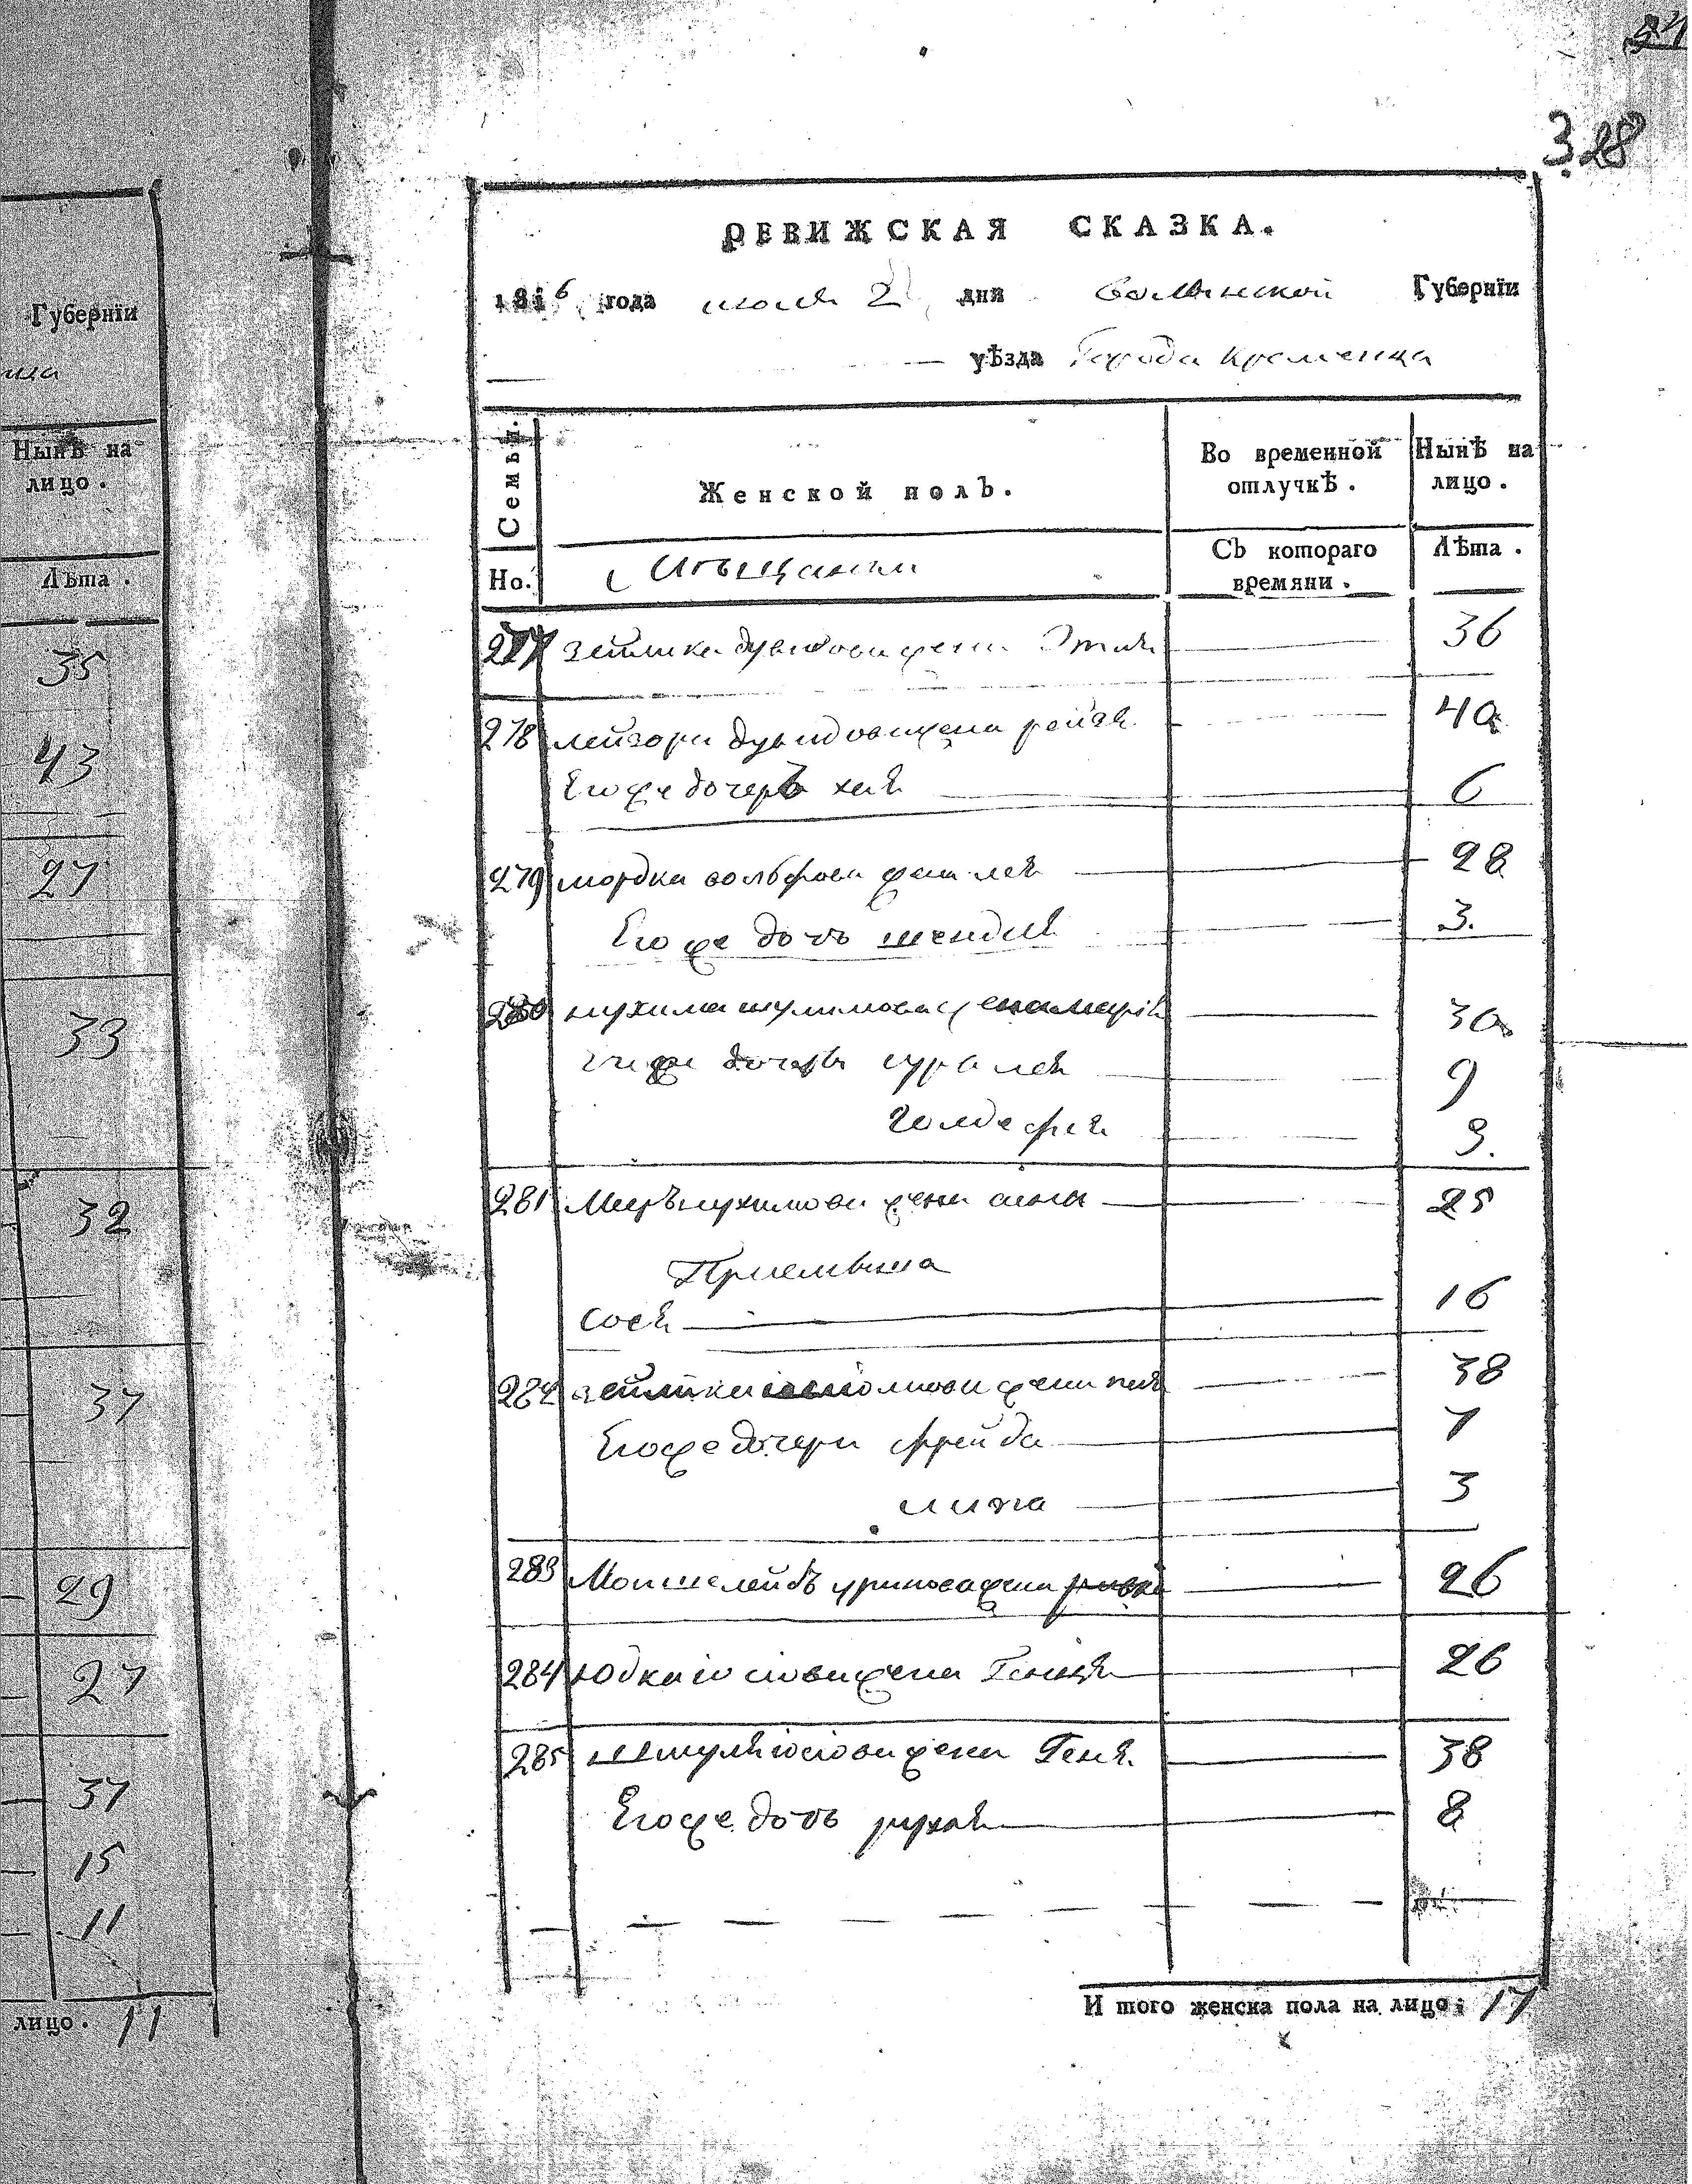 24
328
РЕВИЖСКАЯ СКАЗКА.
1816 года июля 2 дня Волынской Губернїи
уѣзда Города Кременца
Семьи.
Женской полъ.
Во временной отлучкѣ.
Нынѣ на лицо.
Но.
Мѣщанки
Съ котораго времяни.
Лѣта.
277 Зейлика дувидова жена Этля 36
278 лейзора дувидова жена рейзя 40
Его же дочерь хая 6
279 мордка вольфова жена лея 28
Его же дочь шендля 3.
280 нухима шулимова жена марія 30
дочерь сура лея 9
голде фрея 3.
281 Меер нухимова жена 25
Приемыша
Сося 16
282 зейлика жена 38
Его же дочери фрейда 7
3
283 Мошелейбъ жена ривка 26
284 Юдка іосіова жена Генця 26
285 шмуля іосіова жена Геня 38
Его же дочь рухля 8
И того женска пола на лицо: 17
Губернїи
Нынѣ на лицо.
Лѣта.
35
43
27
33
32
37
29
27
37
15
11
лицо. 11